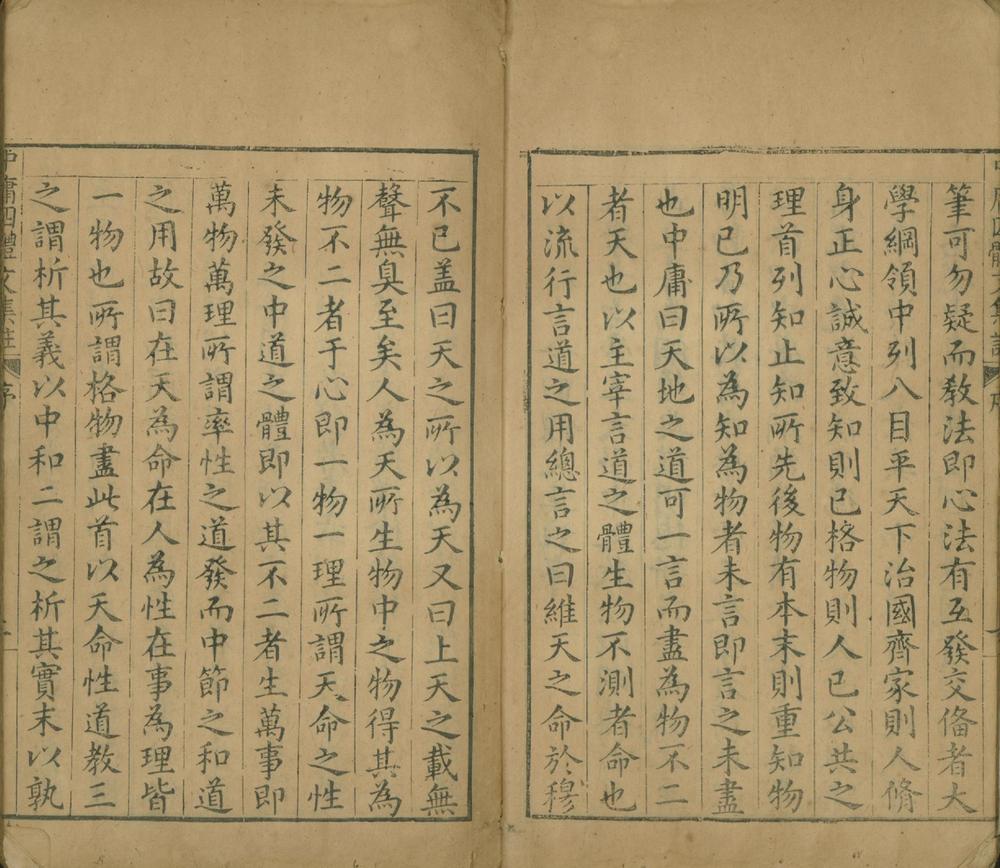 筆可勿疑而教法即心法有互發交俻者大
學綱領中列八目平天下治國齊家則人脩
身正心誠意致知則已格物則人已公共之
理首列知止知所先後物有本末則重知物
明已乃所以為知為物者未言即言之未盡
也中庸曰天地之道可一言而盡為物不二
者天也以主宰言道之體生物不測者命也
以流行言道之用總言之曰維天之命於穆
不已盖曰天之所以為天又曰上天之載無
聲無臭至矣人為天所生物中之物得其為
物不二者于心即一物一理所謂天命之性
未發之中道之體即以其不二者生萬事即
萬物萬理所謂率性之道發而中節之和道
之用故曰在天為命在人為性在事為理皆
一物也所謂格物盡此首以天命性道教三
之謂析其義以中和二謂之析其實末以孰
中庸四體文集註 序